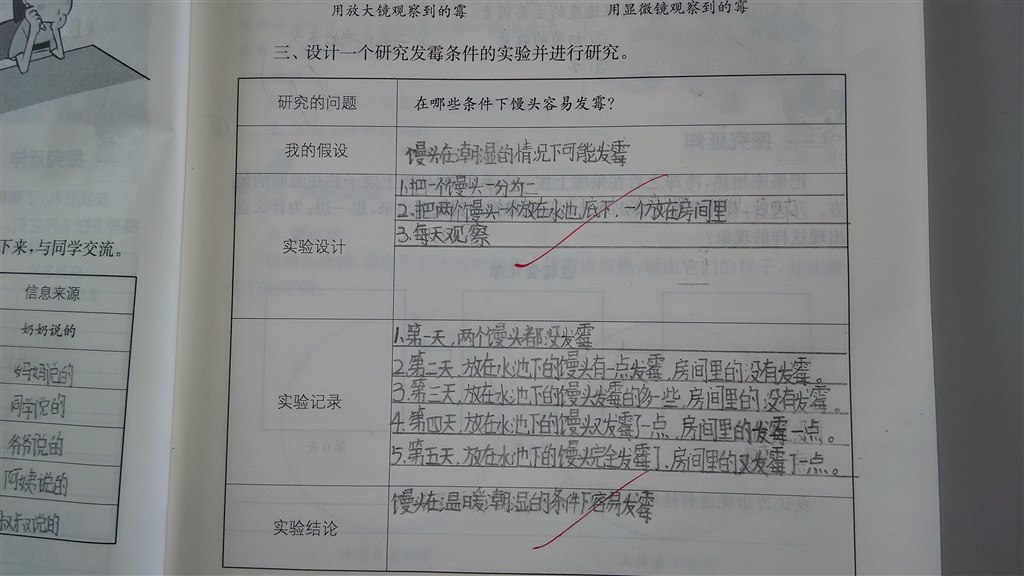 用放大镜观察到的霉
用显微镜观察到的霉
三、设计一个研究发霉条件的实验并进行研究。
研究的问题
在哪些条件下馒头容易发霉?
我的假设
馒头在潮湿的情况下可能发霉
实验设计
1.把一个馒头一分为二
2.把两个馒头一个放在水池底下.一个放在房间里
3.每天观察
实验记录
1.第一天,两个馒头都没发霉
2.第二天,放在水池下的馒头有一点发霉,房间里的没有发霉。
3.第三天,放在水池下的馒头发霉的多一些,房间里的没有发霉。
4.第四天,放在水池下的馒头又发霉了一点,房间里的发霉一点。
5.第五天,放在水池下的馒头完全发霉了,房间里的又发霉了一点。
实验结论
馒头在温暖潮湿的条件下容易发霉
下来,与同学交流。
信息来源
奶奶说的
妈妈说的
同学说的
爷爷说的
阿姨说的
叔叔说的